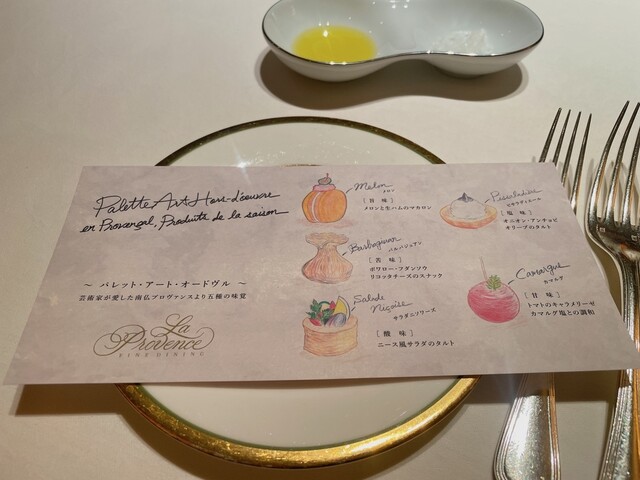 Palette Art Hors-d'œuvre
en Provençal, Produits de la saison
～ パレット・アート・オードヴル ～
芸術家が愛した南仏プロヴァンスより五種の味覚
La
Provence
FINE DINING
Melon
メロン
[ 旨 味 ]
メロンと生ハムのマカロン
Barbajuan
バルバジュアン
[ 苦 味 ]
ポワロー・フダンソウ
リコッタチーズのスナック
Salade
Niçoise
サラダニソワーズ
[ 酸 味 ]
ニース風サラダのタルト
Pissaladière
ピサラディエール
[ 塩 味 ]
オニオン・アンチョビ
オリーブのタルト
Camargue
カマルグ
[ 甘 味 ]
トマトのキャラメリーゼ
カマルグ塩との調和